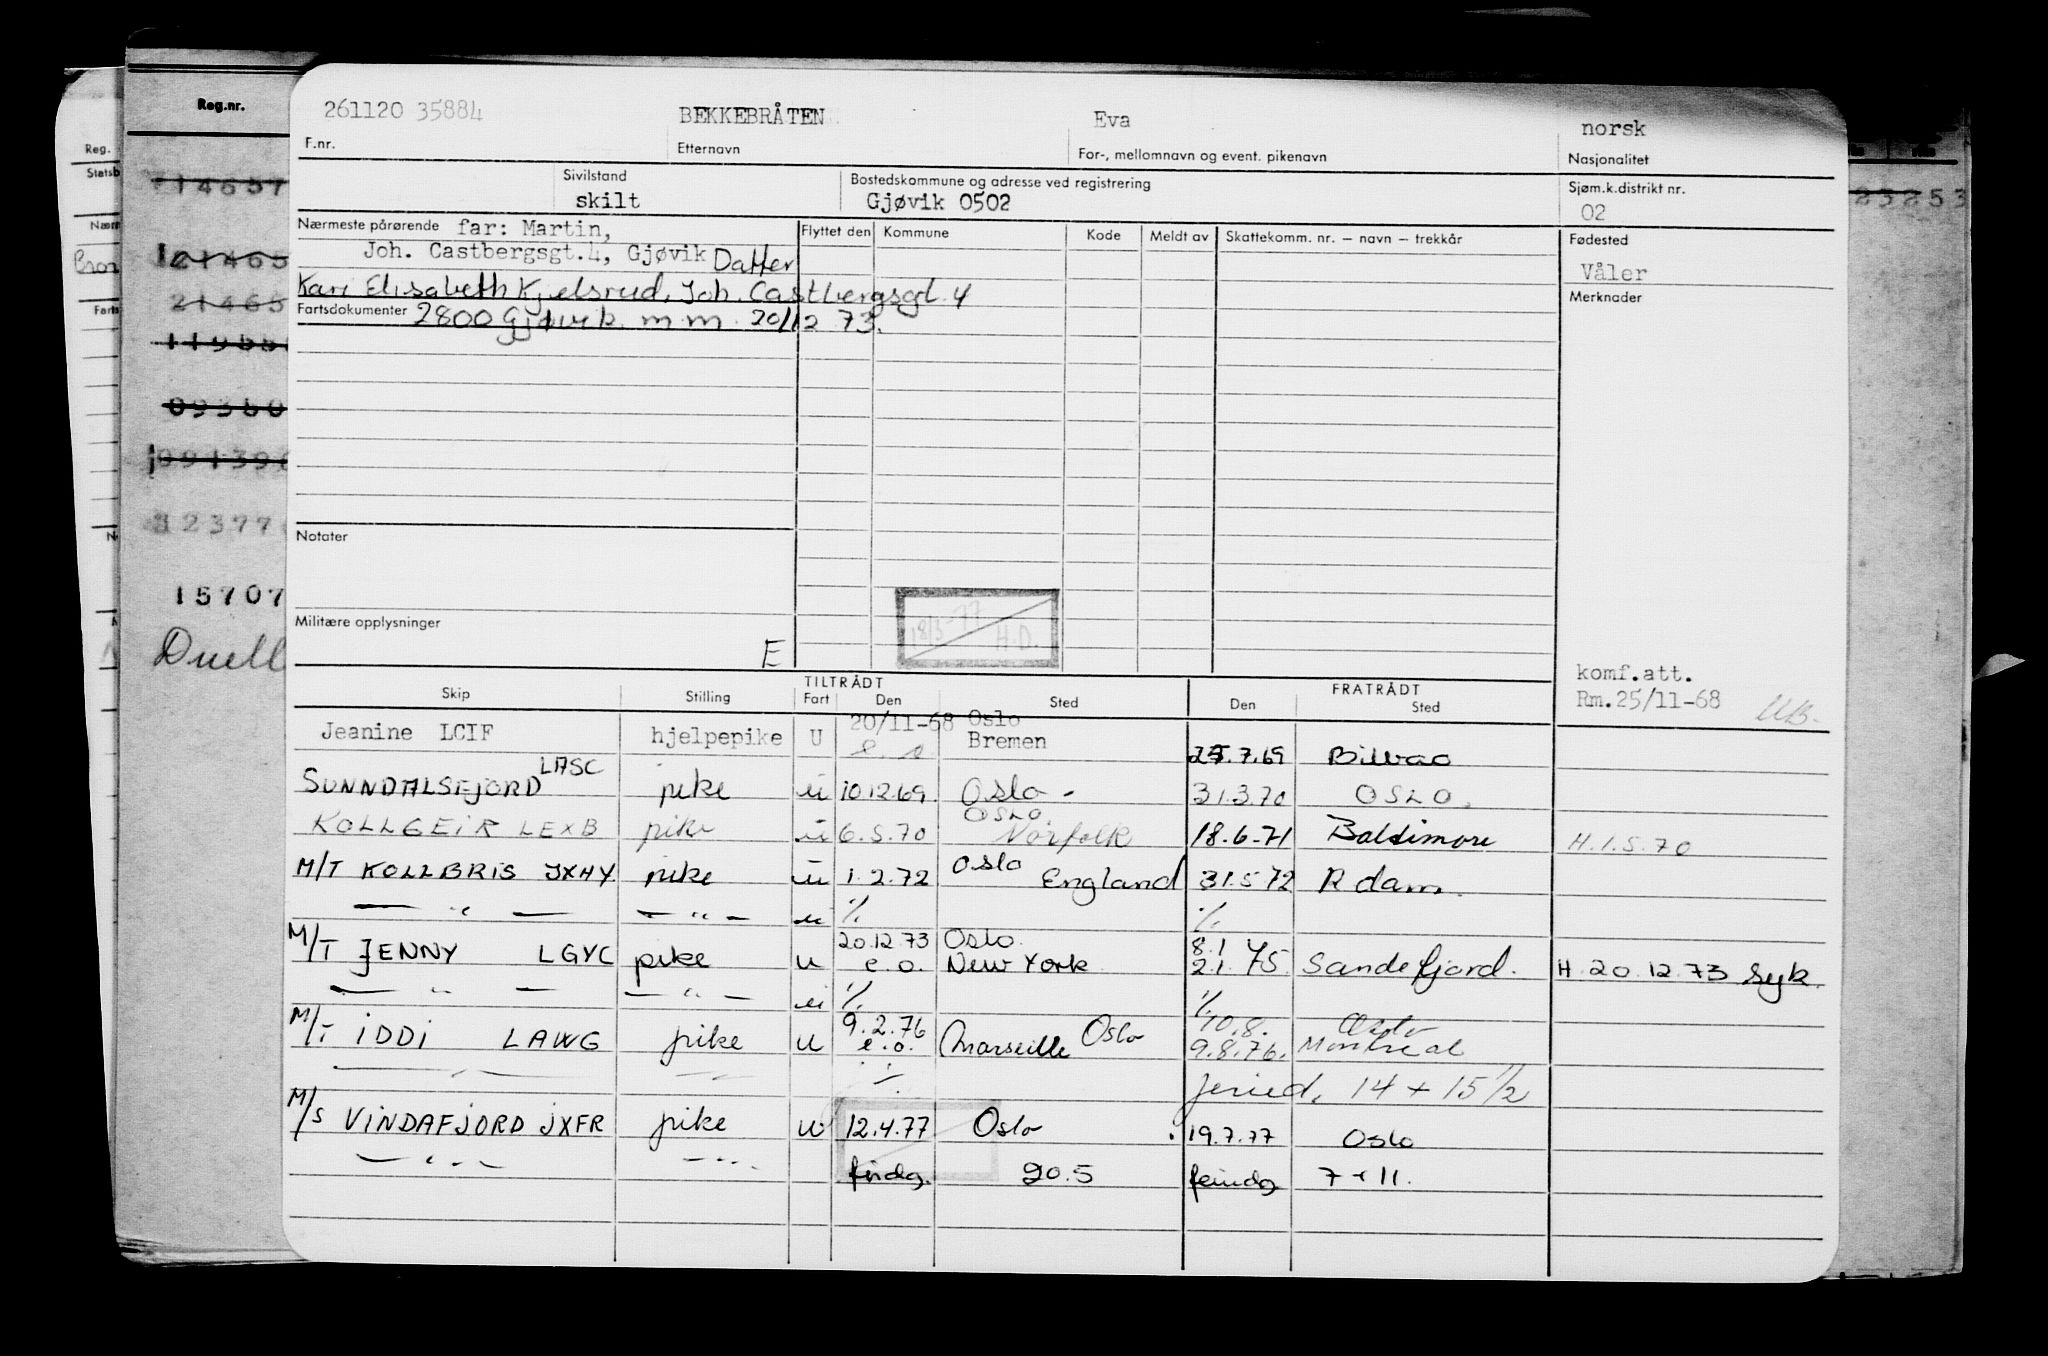 261120 35884 BEKKEBRÅTEN Eva norsk
Reg.nr. F.nr. Etternavn For-, mellomnavn og event. pikenavn Nasjonalitet
Reg.
Sivilstand Bostedskommune og adresse ved registrering Sjøm.k.distrikt nr.
skilt Gjøvik 0502 02
Nærmeste pårørende far: Martin, Flyttet den Kommune Kode Meldt av Skattekomm. nr. – navn – trekkår Fødested
Joh. Castbergsgt.4, Gjøvik Datter Våler
Kari Elisabeth Kjelsrud, Joh. Castbergsgt. 4 Merknader
Fartsdokumenter 2800 Gjøvik m m 20/12 73.
Notater
15707
Militære opplysninger 18/5-77 H.D.
E
Duell
komf.att.
Rm.25/11-68
TILTRÅDT FRATRÅDT
Skip Stilling Fart Den Sted Den Sted
20/11-68 Oslo
Jeanine LCIF hjelpepike U e.o. Bremen 25.7.69 Bilbao
SUNNDALSFJORD LASC pike u 10.12.69. Oslo - 31.3.70 OSLO.
OSLO
KOLLGEIR LEXB pike u 6.5.70 Norfolk 18.6.71 Baltimore H.1.5.70
M/T KOLLBRIS JXHY pike u 1.2.72 Oslo England 31.5.72 R dam.
— " — — " — u % %
20.12.73 Oslo. 8.1
M/T JENNY LGYC pike u e.o. New York 2.1. 75. Sandefjord. H. 20.12.73 syk.
— " — — " — u % %
9.2.76 Oslo 10.8. Oslo
M/T IDDI LAWG pike u e.o. Marseille 9.8.76. Montreal
% feried. 14 + 15 1/2
M/S VINDAFJORD JXFR pike u 12.4.77 Oslo 19.7.77 Oslo
— " — — " — 20.5 7 + 11.